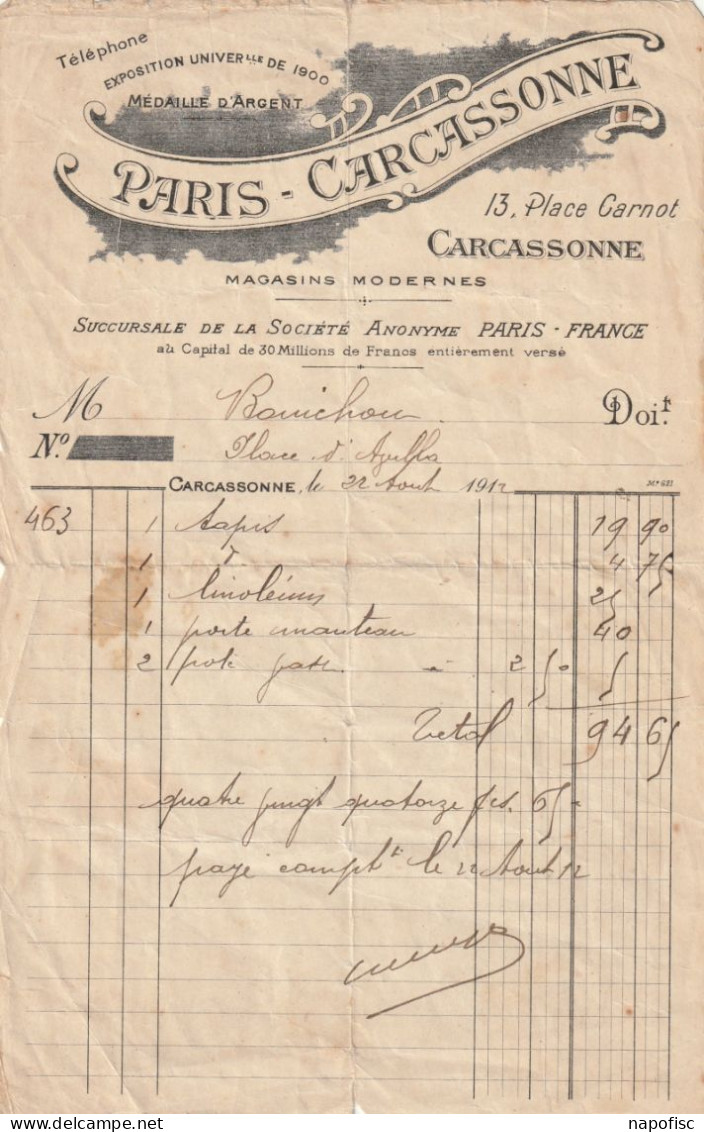 Téléphone
EXPOSITION UNIVERLLE DE 1900
MÉDAILLE D'ARGENT
PARIS - CARCASSONNE
13, Place Carnot
CARCASSONNE
MAGASINS MODERNES
SUCCURSALE DE LA SOCIÉTÉ ANONYME PARIS - FRANCE
au Capital de 30 Millions de Francs entièrement versé
M Bonichou Doit
No
Place d'
CARCASSONNE, le 22 Aout 1912
463 1 tapis 19 90
1 4 75
1 linoléum 25
1 porte manteau 40
2 2 50 5
Total 94 65
quatre vingt quatorze frs. 65
payé compt le 22 Aout 12
napofisc